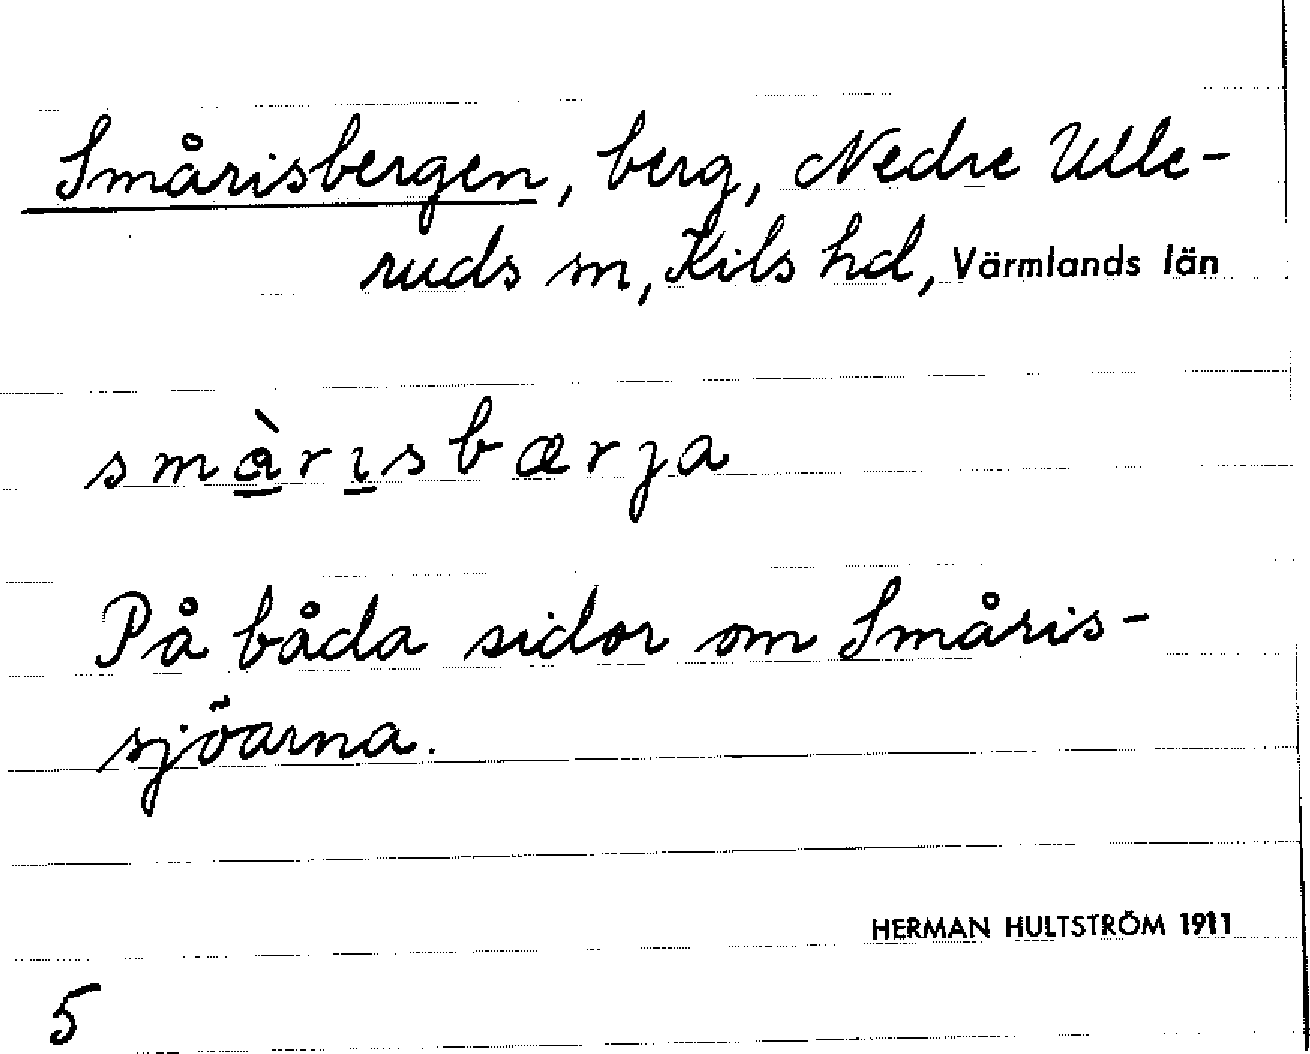 Smårisbergen, berg, Nedre Ulle-
ruds sn, Kils hd, Värmlands län
smàrısbærja
På båda sidor om Småris-
sjöarna.
HERMAN HULTSTRÖM 1911
5